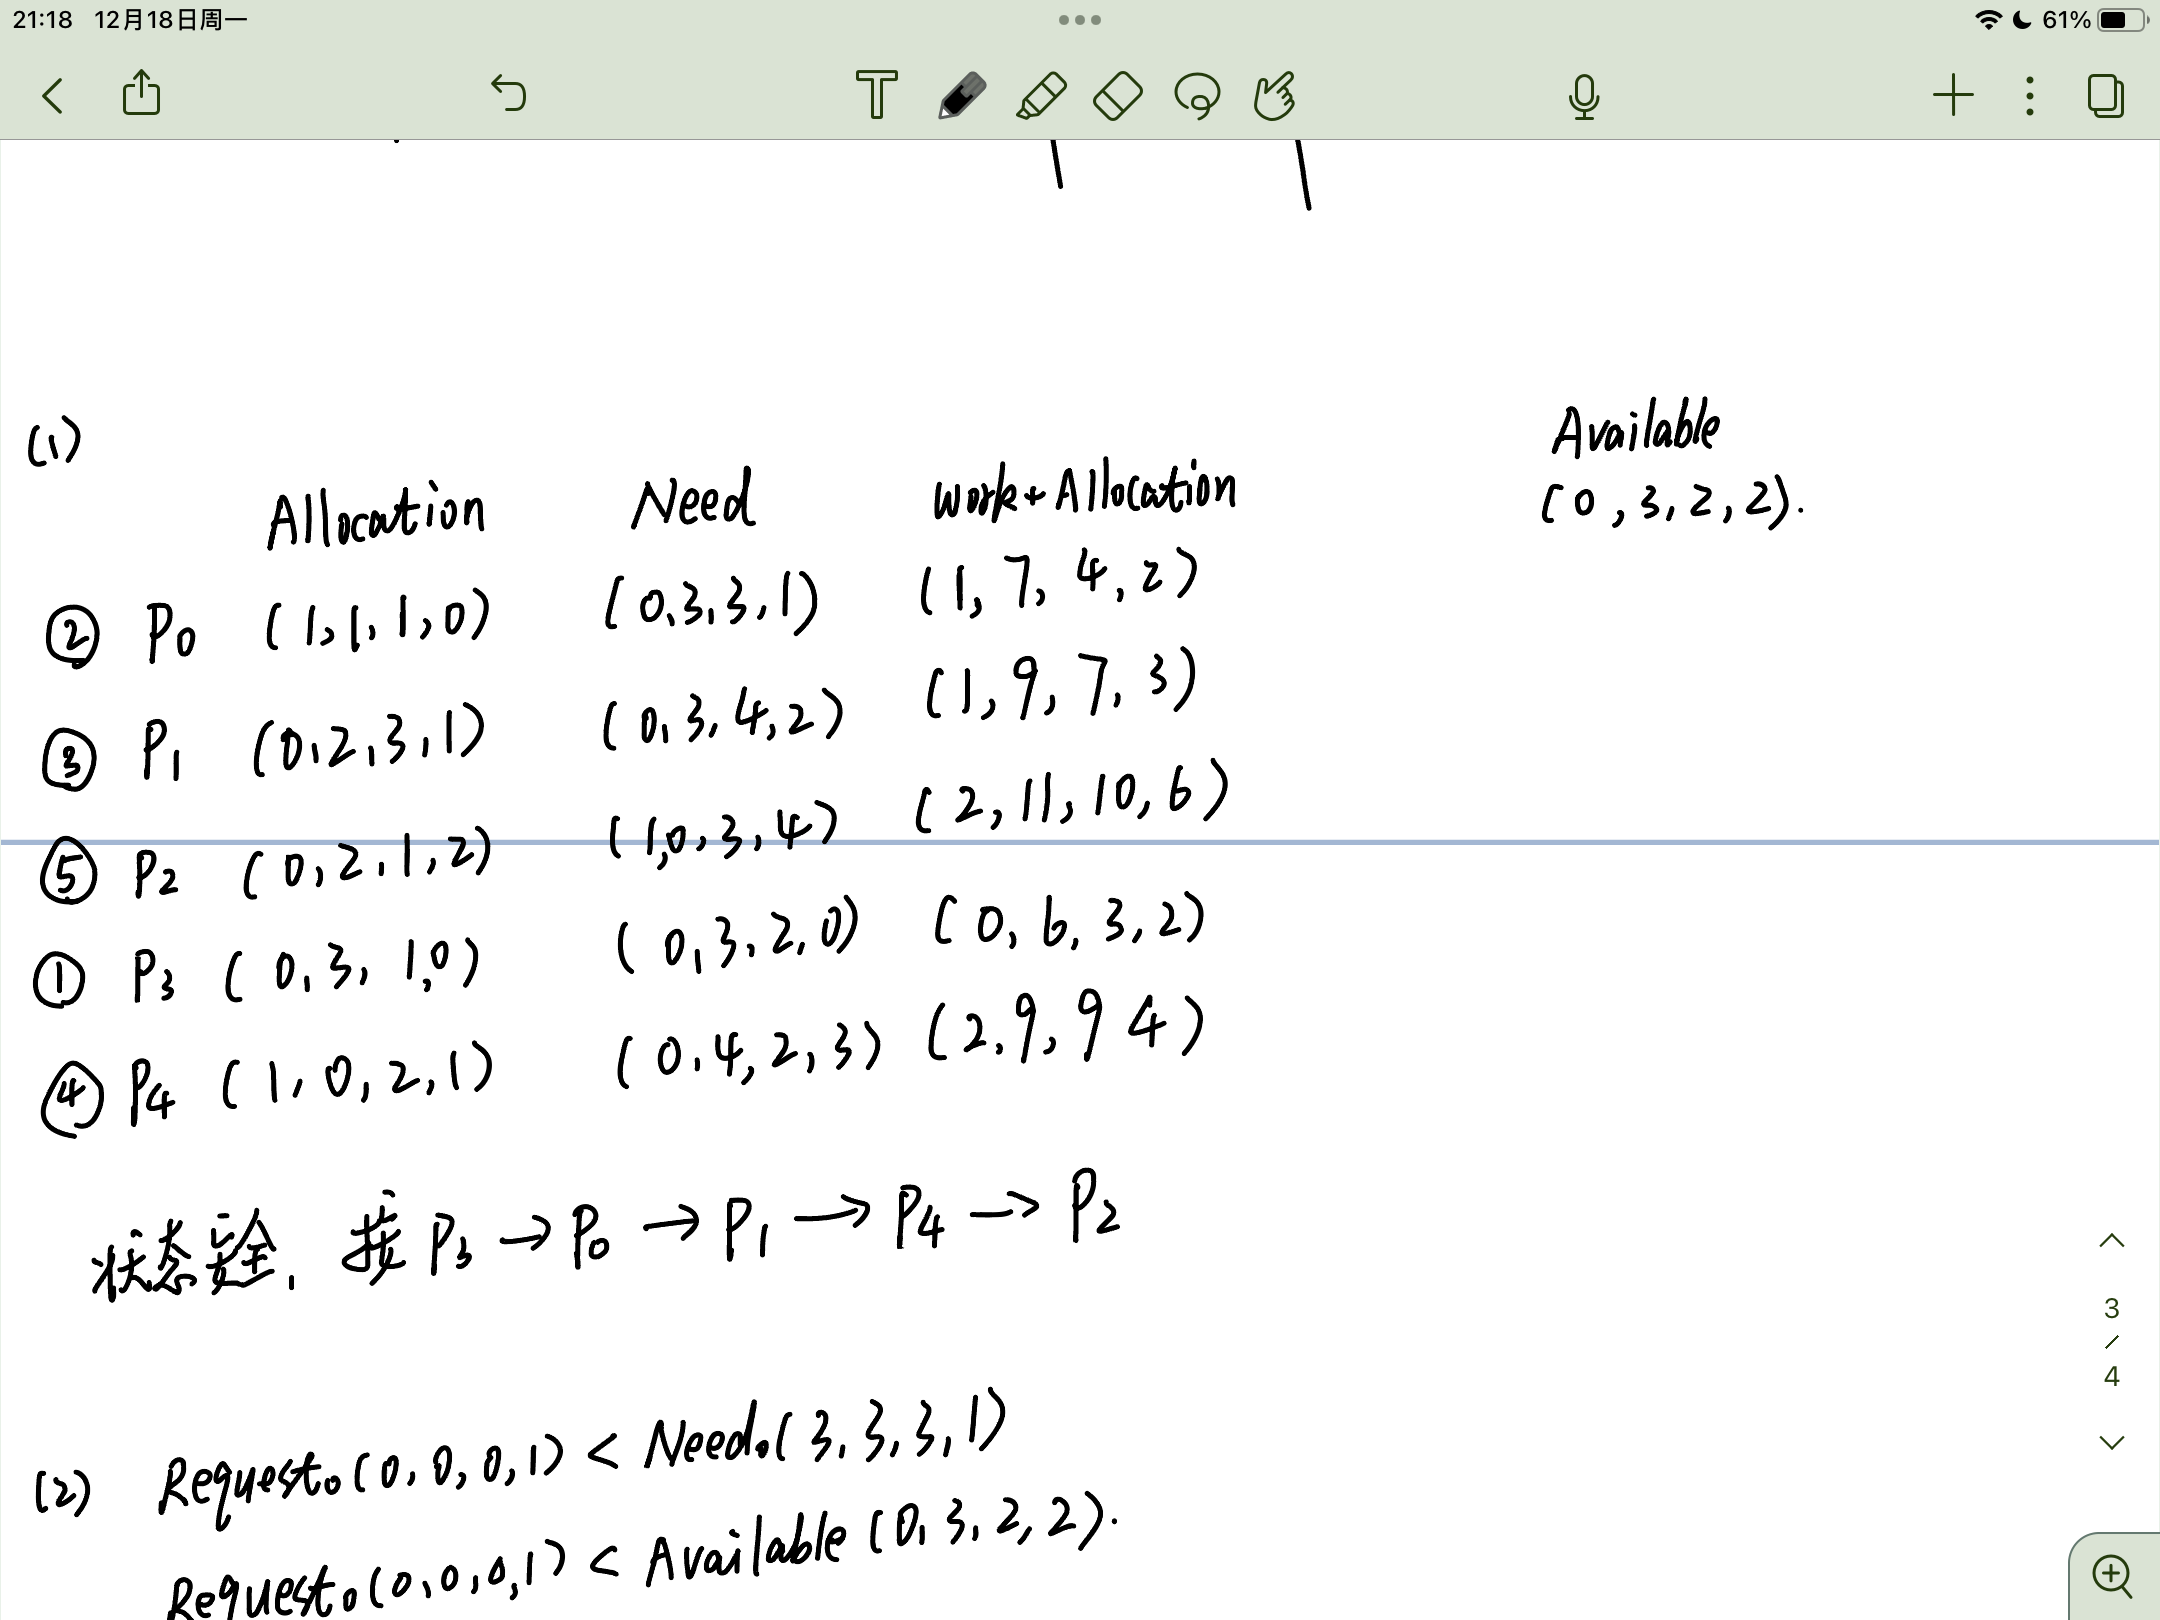 21:18 12月18日周一
61%
(1)
Available
(0,3,2,2).
Allocation Need Work+Allocation
② P0 (1,1,1,0) (0,3,3,1) (1,7,4,2)
③ P1 (0,2,3,1) (0,3,4,2) (1,9,7,3)
⑤ P2 (0,2,1,2) (1,0,3,4) (2,11,10,6)
① P3 (0,3,1,0) (0,3,2,0) (0,6,3,2)
④ P4 (1,0,2,1) (0,4,2,3) (2,9,9 4)
状态安全, 按 P3 → P0 → P1 → P4 → P2
(2) Request0(0,0,0,1) < Need0(3,3,3,1)
Request0(0,0,0,1) < Available (0,3,2,2).
3
/
4